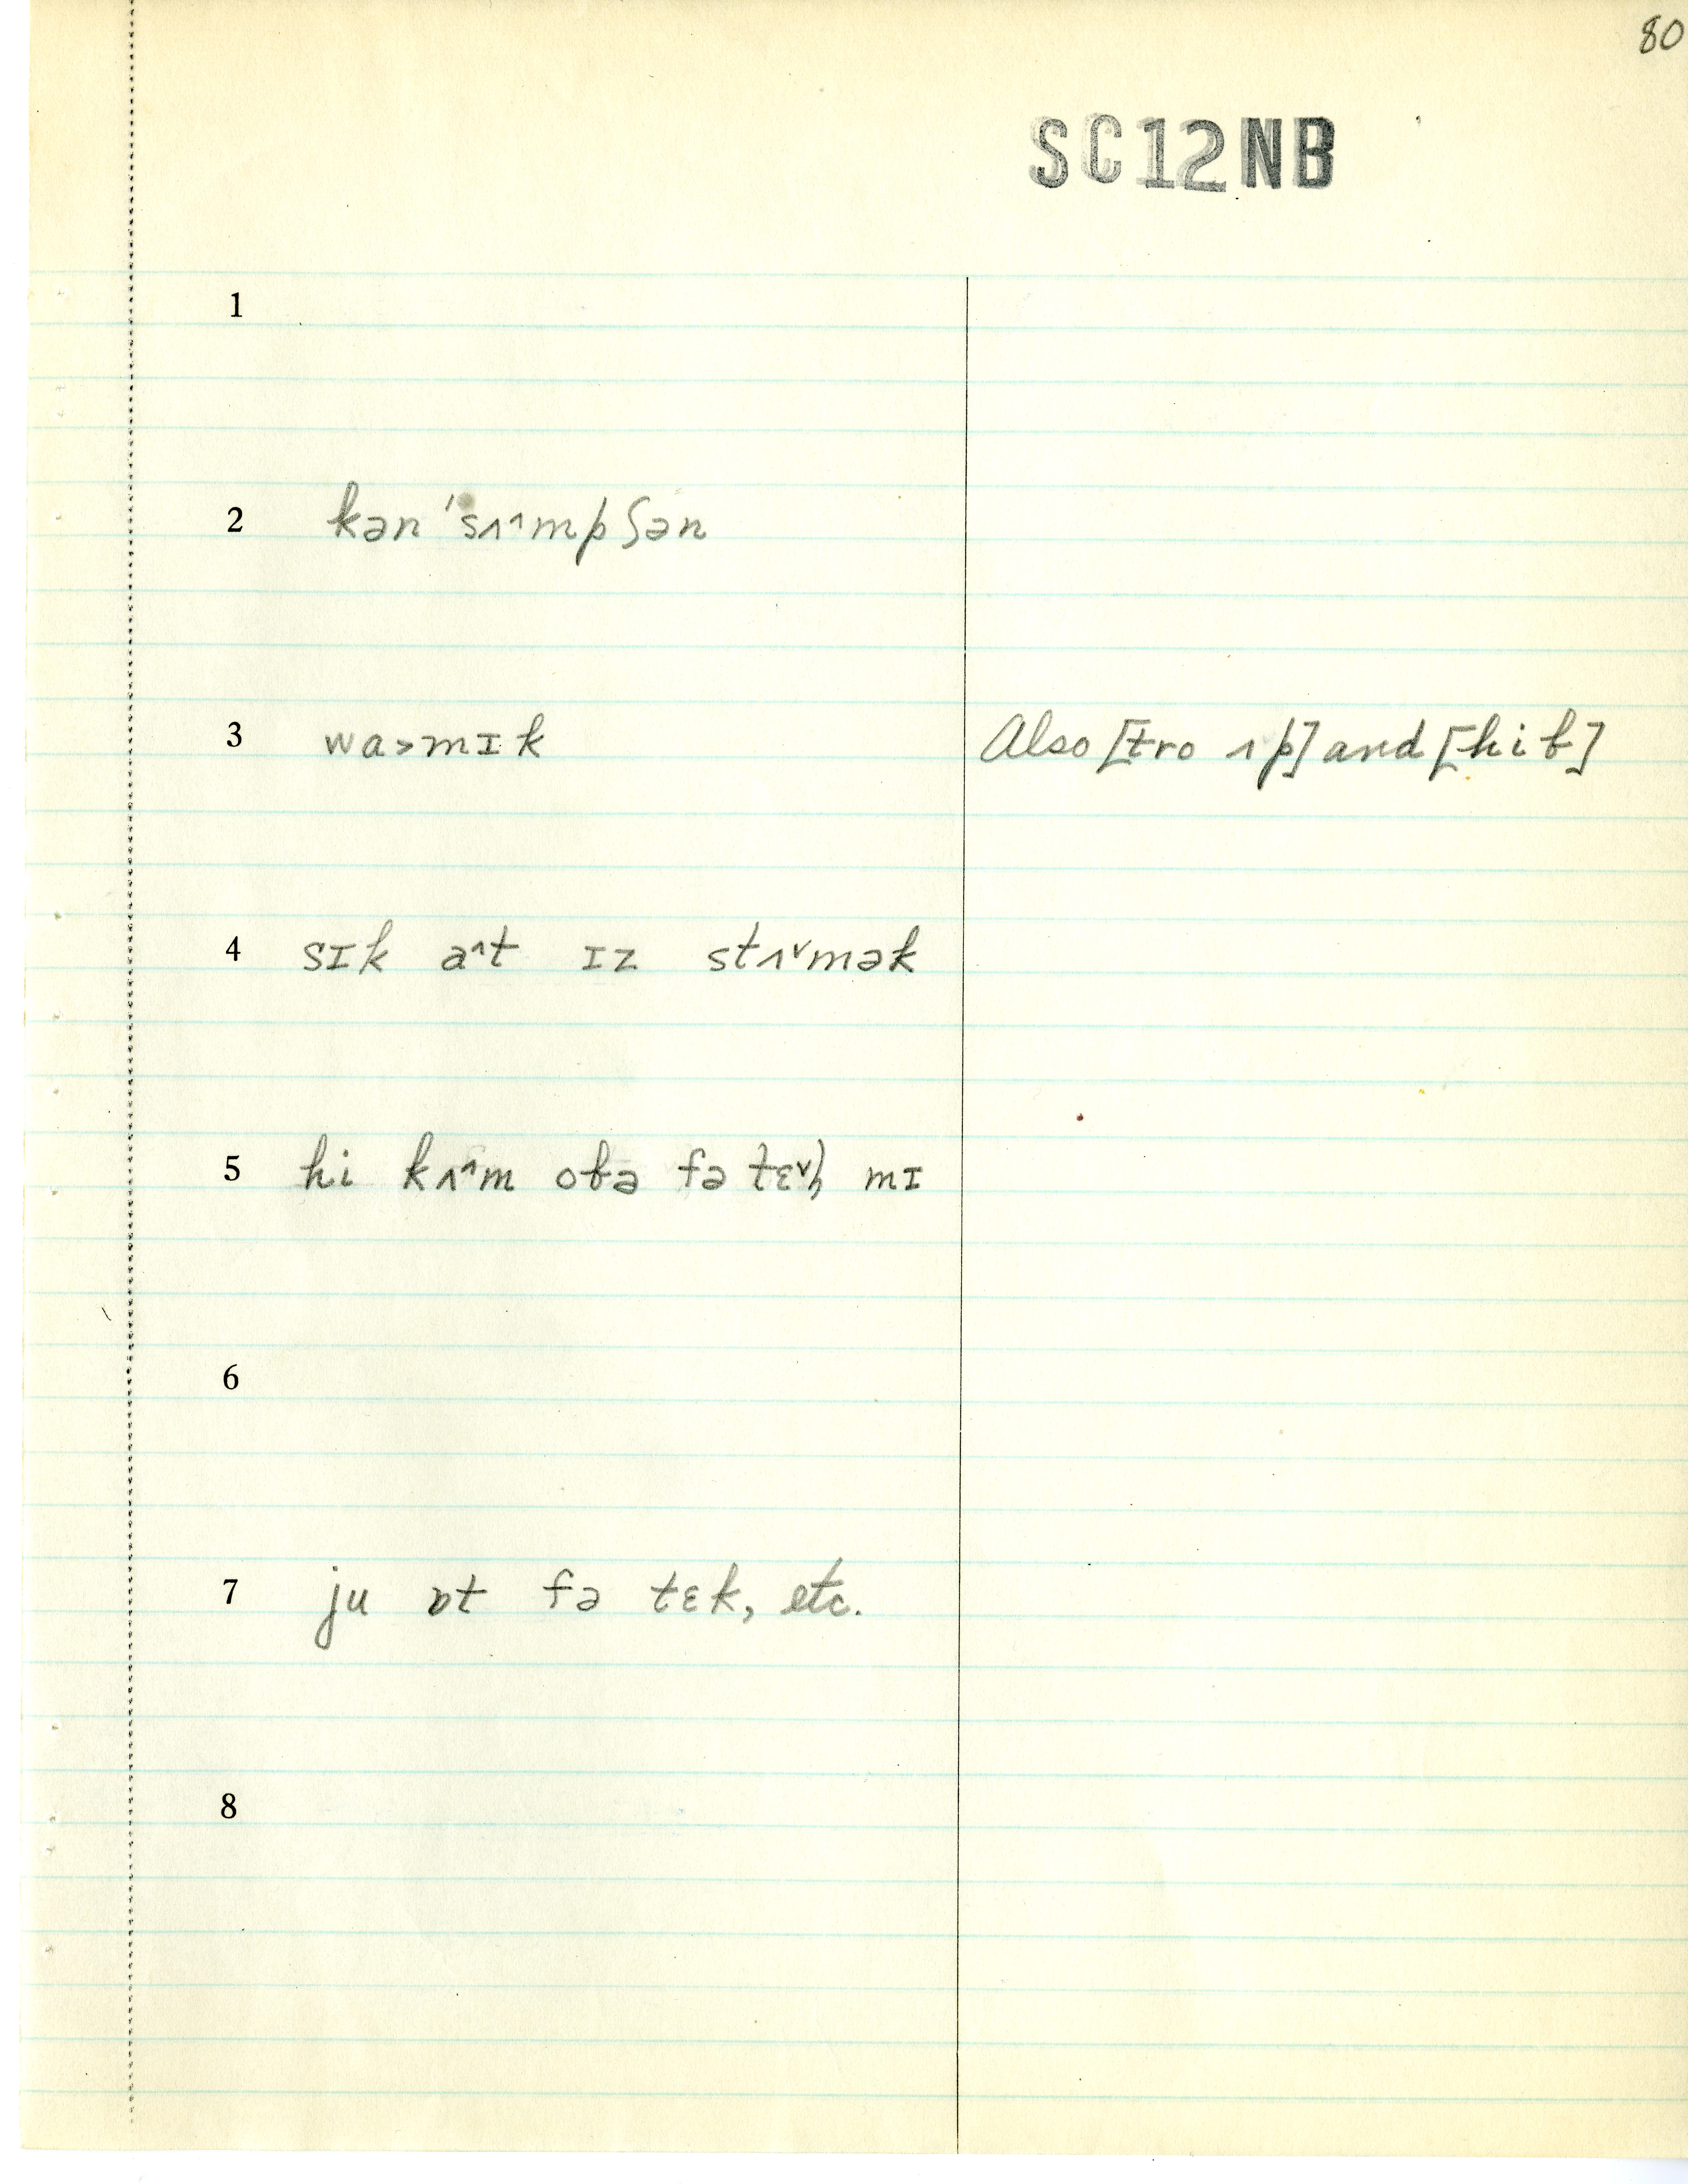 80
SC12NB
1
2 kən 'sʌ˄mpʃən
3 wa˃mɪk Also [tro ʌp] and [hiƀ]
4 sɪk a˄t ɪz stʌ˅mək
5 hi kʌ˄m oƀə fə mɪ
6
7 ju ɒt fə tɛk, etc.
8